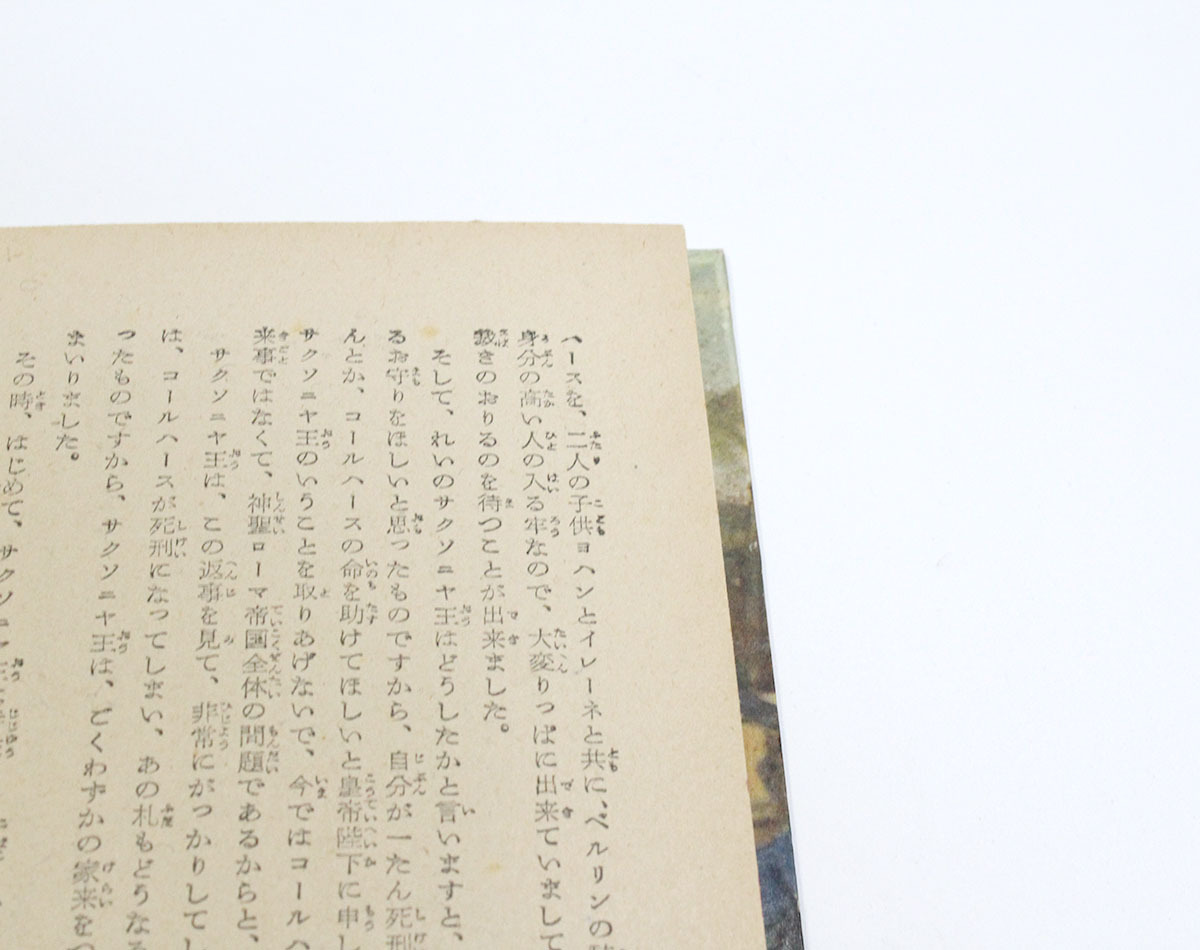 ヘースを、二人の子供ヨハンとイレーネと共に、ベルリンの
身分の高い人の入る牢なので、大変りっぱに出来ていまして
裁きのおりるのを待つことが出来ました。
そして、れいのサクソニヤ王はどうしたかと言いますと、
るお守りをほしいと思ったものですから、自分が一たん死刑
んとか、コールハースの命を助けてほしいと皇帝陛下に申し
サクソニヤ王のいうことを取りあげないで、今ではコールハ
来事ではなくて、神聖ローマ帝国全体の問題であるからと、
サクソニヤ王は、この返事を見て、非常にがっかりしてし
は、コールハースが死刑になってしまい、あの札もどうなる
ったものですから、サクソニヤ王は、ごくわずかの家来をつ
まいりました。
その時、はじめて、サクソニヤ